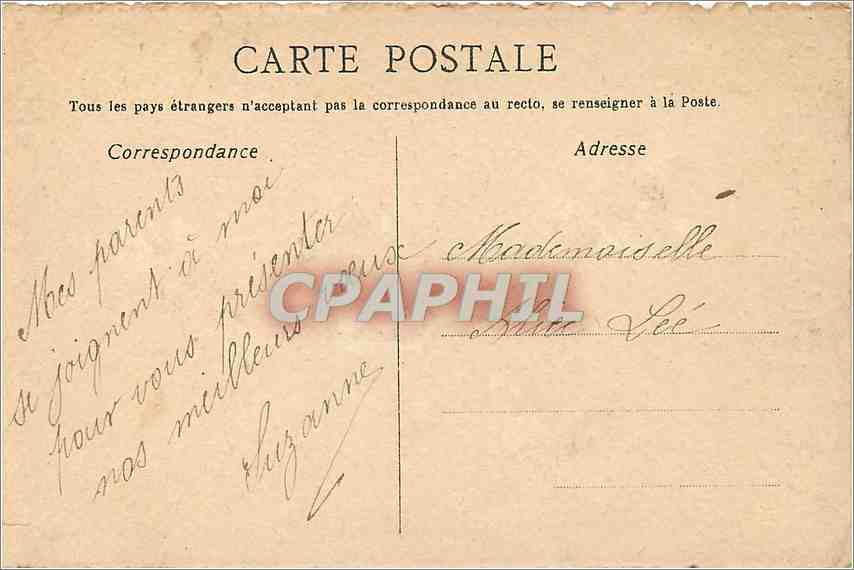 CARTE POSTALE
Tous les pays étrangers n'acceptant pas la correspondance au recto, se renseigner à la Poste.
Correspondance
Mes parents
se joignent à moi
pour vous présenter
nos meilleurs vœux
Suzanne
Adresse
Mademoiselle
Alice Léé
CPAPHIL